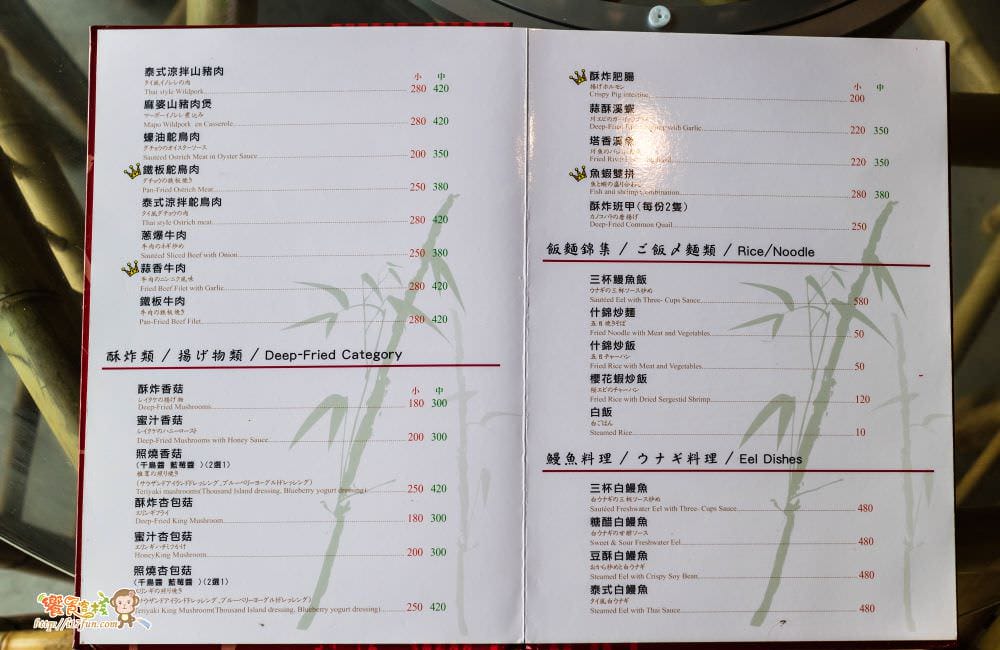 小 中
泰式涼拌山豬肉
タイ風イノシシの肉
Thai style Wildpork 280 420
麻婆山豬肉煲
マーボーイノシシ煮込み
Mapo Wildpork en Casserole 280 420
蠔油鴕鳥肉
ダチョウのオイスターソース
Sautéed Ostrich Meat in Oyster Sauce 200 350
鐵板鴕鳥肉
ダチョウの鉄板焼き
Pan-Fried Ostrich Meat 250 380
泰式涼拌鴕鳥肉
タイ風ダチョウの肉
Thai style Ostrich meat 280 420
蔥爆牛肉
牛肉のネギ炒め
Sautéed Sliced Beef with Onion 250 380
蒜香牛肉
牛肉のニンニク風味
Fried Beef Filet with Garlic 280 420
鐵板牛肉
牛肉の鉄板焼き
Pan-Fried Beef Filet 280 420
酥炸類 / 揚げ物類 / Deep-Fried Category
小 中
酥炸香菇
シイタケの揚げ物
Deep-Fried Mushrooms 180 300
蜜汁香菇
シイタケのハニーロースト
Deep-Fried Mushrooms with Honey Sauce 200 300
照燒香菇
(千島醬 藍莓醬)(2選1)
椎茸の照り焼き
(サウザンドアイランドドレッシング、ブルーベリーヨーグルトドレッシング)
Teriyaki mushrooms(Thousand Island dressing, Blueberry yogurt dressing) 250 420
酥炸杏包菇
エリンギフライ
Deep-Fried King Mushroom 180 300
蜜汁杏包菇
エリンギハチミツかけ
HoneyKing Mushroom 200 300
照燒杏包菇
(千島醬 藍莓醬)(2選1)
エリンギの照り焼き
(サウザンドアイランドドレッシング、ブルーベリーヨーグルトドレッシング)
Teriyaki King Mushroom(Thousand Island dressing, Blueberry yogurt dressing) 250 420
http://it7fun.com/
小 中
酥炸肥腸
揚げホルモン
Crispy Pig intestine 200
蒜酥溪蝦
川エビのガーリック
Deep-Fried with Garlic 220 350
塔香溪魚
川魚のバジル
Fried River 220 350
魚蝦雙拼
魚と蝦の盛り合わせ
Fish and shrimp Combination 280 380
酥炸班甲(每份2隻)
カノコバトの唐揚げ
Deep-Fried Common Quail 250
飯麵錦集 / ご飯〆麺類 / Rice/Noodle
三杯鰻魚飯
ウナギの三杯ソース炒め
Sautéed Eel with Three- Cups Sauce 580
什錦炒麵
五目焼きそば
Fried Noodle with Meat and Vegetables 50
什錦炒飯
五目チャーハン
Fried Rice with Meat and Vegetables 50
櫻花蝦炒飯
桜エビのチャーハン
Fried Rice with Dried Sergestid Shrimp 120
白飯
白ごはん
Steamed Rice 10
鰻魚料理 / ウナギ料理 / Eel Dishes
三杯白鰻魚
白ウナギの三杯ソース炒め
Sautéed Freshwater Eel with Three- Cups Sauce 480
糖醋白鰻魚
白ウナギの甘酢ソース
Sweet & Sour Freshwater Eel 480
豆酥白鰻魚
おから炒めと白ウナギ
Steamed Eel with Crispy Soy Bean 480
泰式白鰻魚
タイ風白ウナギ
Steamed Eel with Thai Sauce 480